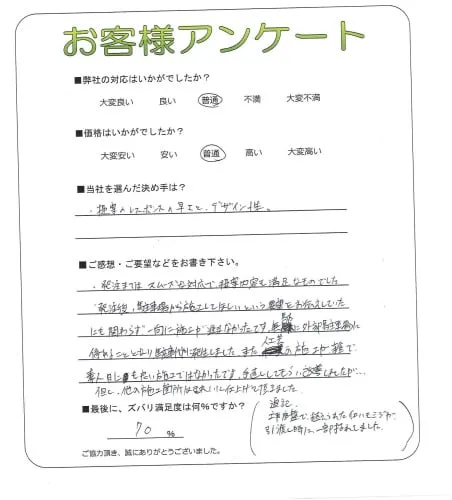 お客様アンケート
■弊社の対応はいかがでしたか?
大変良い 良い 普通 不満 大変不満
■価格はいかがでしたか?
大変安い 安い 普通 高い 大変高い
■当社を選んだ決め手は?
・提案のレスポンスの早さと、デザイン性。
■ご感想・ご要望などをお書き下さい。
・発注まではスムーズな対応で、提案内容も満足なものでした
発注後、駐車場から施工してほしいという要望をお伝えしていた
にも関わらず一向に施工が進まなかったです。 に外部駐車場に
停めることとなり駐車代が発生しました。また人工芝の施工が雑で、
素人目にも 施工ではなかったです。手直ししてもらい改善しましたが…
但し、他の施工箇所はきれいに仕上げて頂きました。
■最後に、ズバリ満足度は何%ですか?
70 %
追記.
引渡し時に、一部 されてました。
ご協力頂き、誠にありがとうございました。